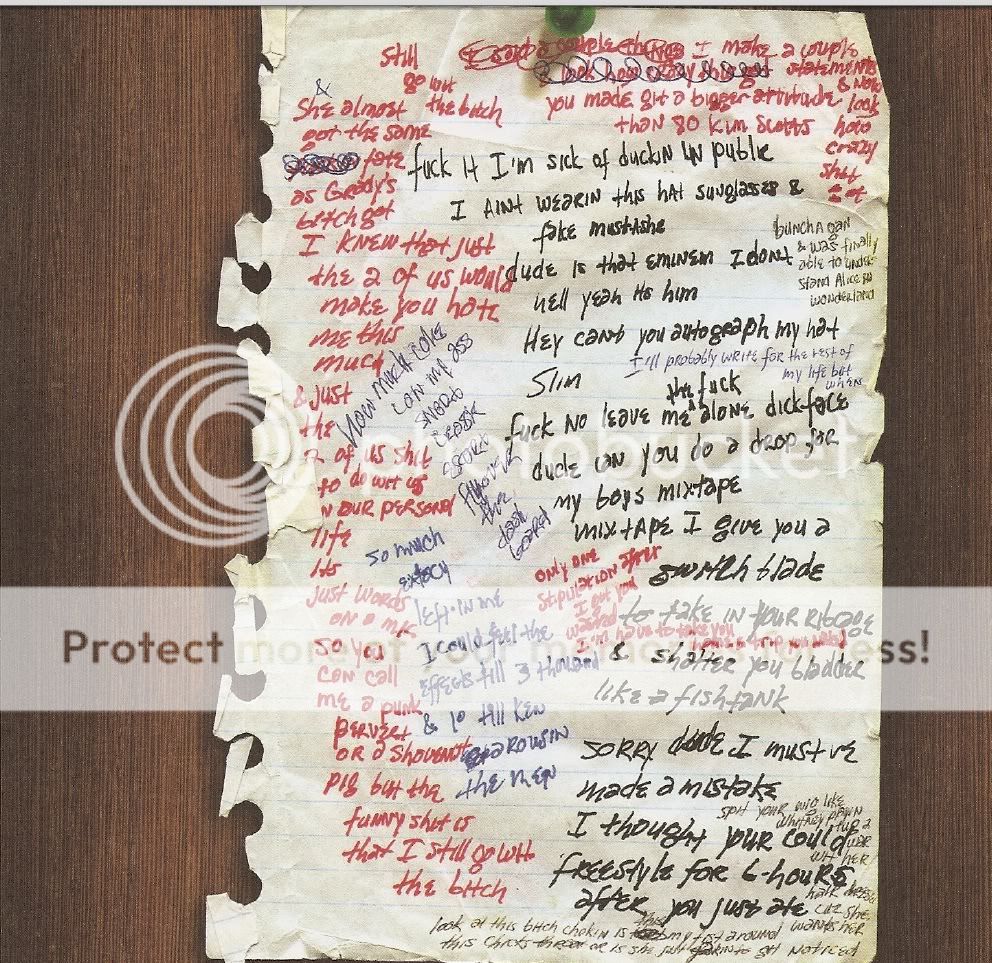 I said a couple things I make a couple
look how crazy shit got statements
& now
you made git a bigger attitude look
than 80 Kim Scotts how
crazy
shit
got
still
go wit
the bitch
&
She almost
got the same
fate
as Grady's
bitch got
I KNEW that just
the 2 of us would
make you hate
me this
much
& just
the
2 of us shit
to do wit us
N OUR PERSONAL
life
its
just words
on a mic
so you
can call
me a punk
pervert
or a shovenist
pig but the
funny shit is
that I still go wit
the bitch
fuck it I'm sick of duckin UN public
I AINT WEARIN this hat sunglasses &
fake mustashe
dude is that eminem I dont
hell yeah its him
Hey cant you autograph my hat
Slim
the fuck
fuck NO leave me ^ alone dickface
dude can you do a drop for
my boys mixtape
mixtape I give you a
switch blade
to take in your ribcage
& shatter you bladder
like a fishtank
sorry dude I must ve
made a mistake
I thought your could
freestyle for 6-hours
after you just ate
buncha
& was finally
able to under
stand Alice in
wonderland
I ill probably write for the rest of
my life but
when
How much coke
can my ass
snort
all over
the
dash
board
so much
extacy
left in me
I could feel the
effects till 3 thousand
& 10 till Ken
arousin
the men
only one
stipulation after
I get you
wasted
I'm have to take you
split your wig like
whitney
up a
war
wit her
hair dresser
cuz she
wants her
look at this bitch chokin is this my fist around
this chicks throat or is she just to git noticed
photobucket
Protect more of your memories for less!